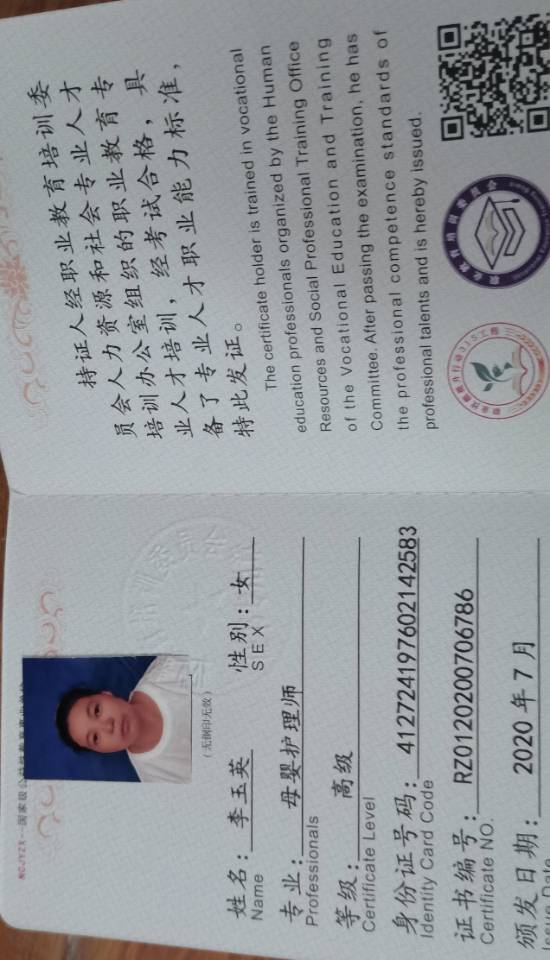 持证人经职业教育培训委
员会人力资源和社会专业人才
培训办公室组织的职业教育专
业人才培训，经考试合格，具
备了专业人才职业能力标准，
特此发证。
The certificate holder is trained in vocational
education professionals organized by the Human
Resources and Social Professional Training Office
of the Vocational Education and Training
Committee. After passing the examination, he has
the professional competence standards of
professional talents and is hereby issued.
职业教育培训委员会
（无钢印无效）
姓名：李玉英 性别：女
Name SEX
专业：母婴护理师
Professionals
等级：高级
Certificate Level
身份证号码：412724197602142583
Identity Card Code
证书编号：RZ0120200706786
Certificate NO.
颁发日期：2020年7月
Issue Date